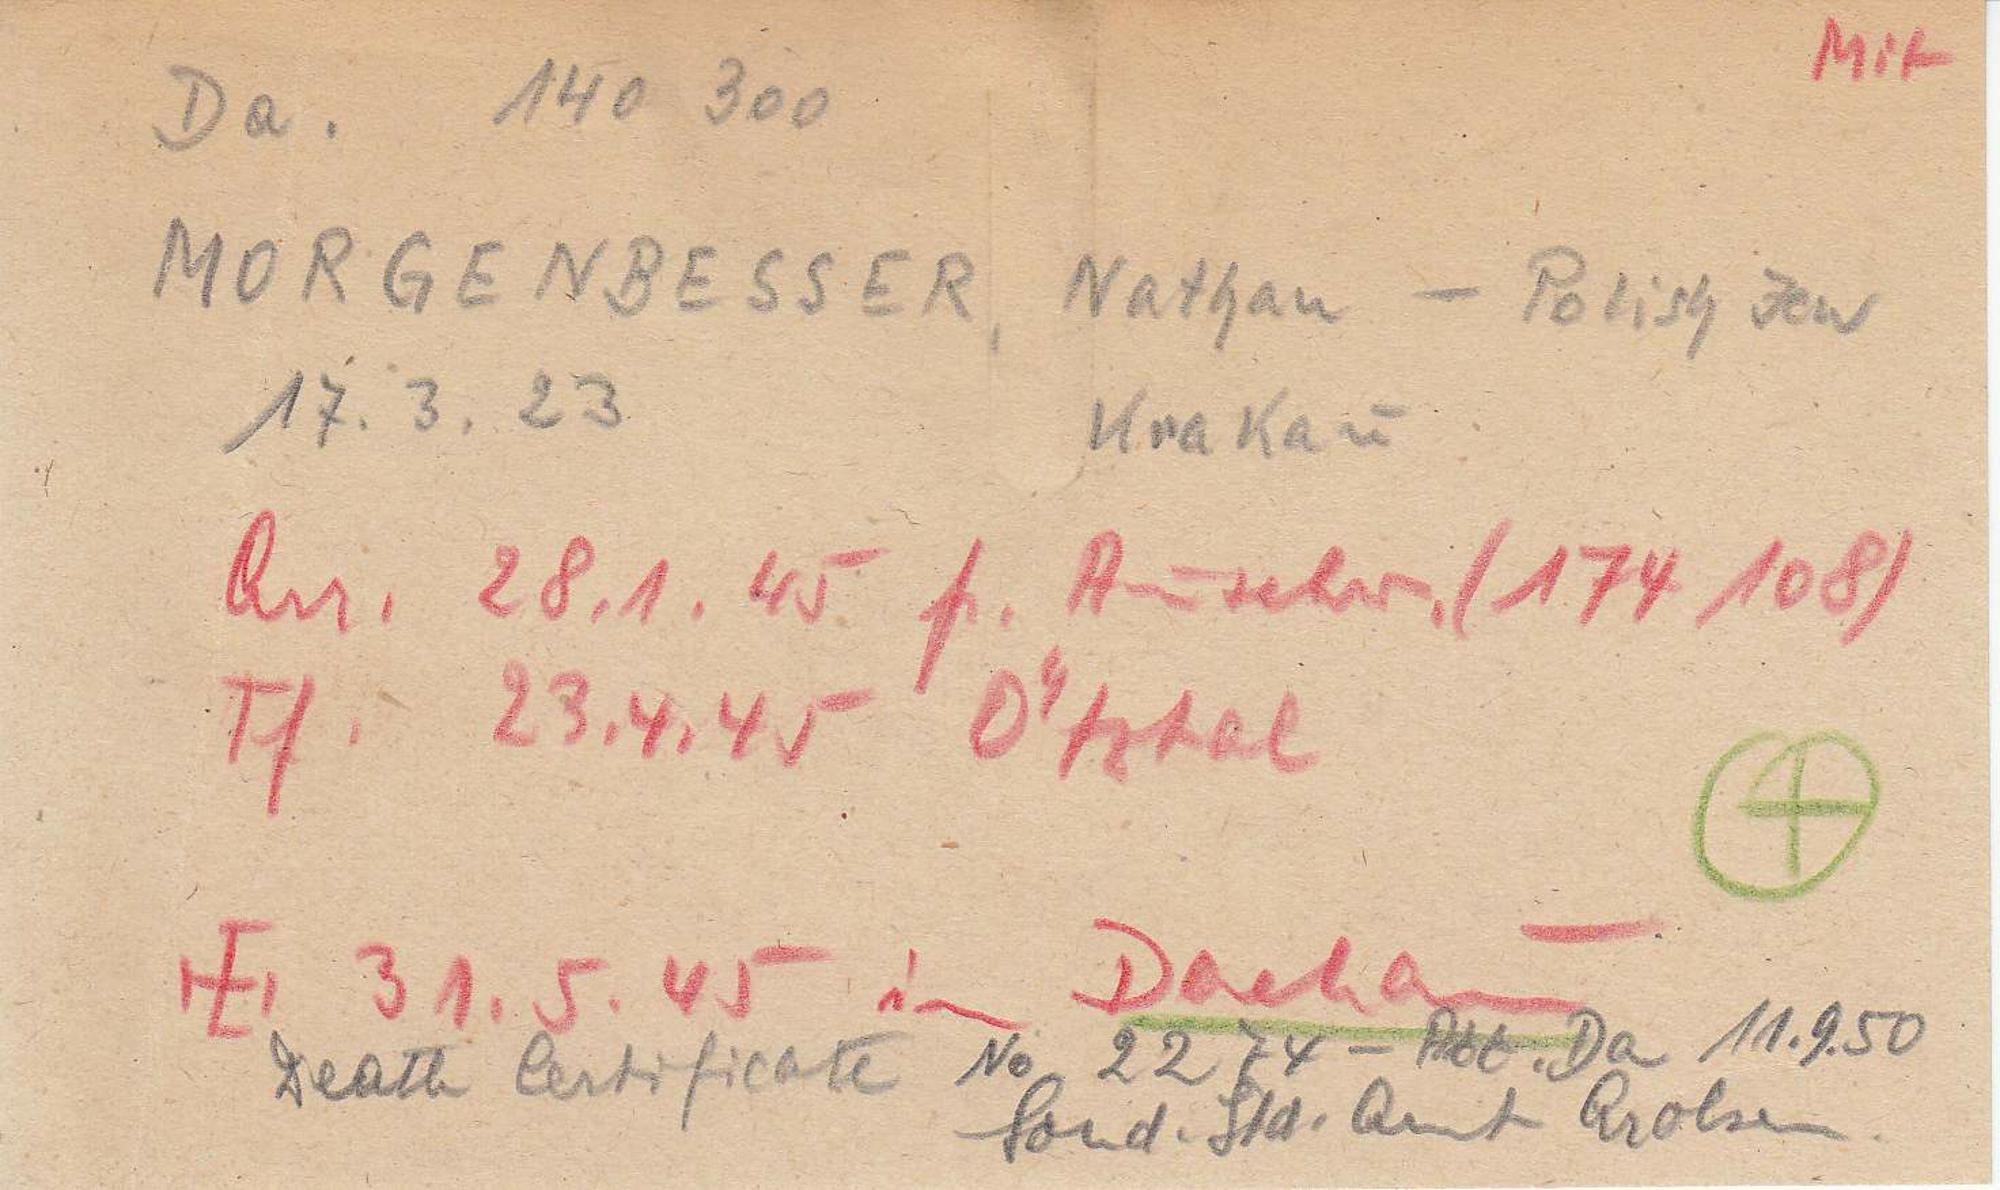 Mit
Da. 140 300
MORGENBESSER, Nathan – Polish Jew
17.3.23 Krakau
Arr. 28.1.45 f. Auschw. (174 108)
Tf. 23.4.45 Ötztal
31.5.45 in Dachau
Death Certificate No 2274 – Abt. Da 11.9.50
Sond. Std. Amt Arolsen.